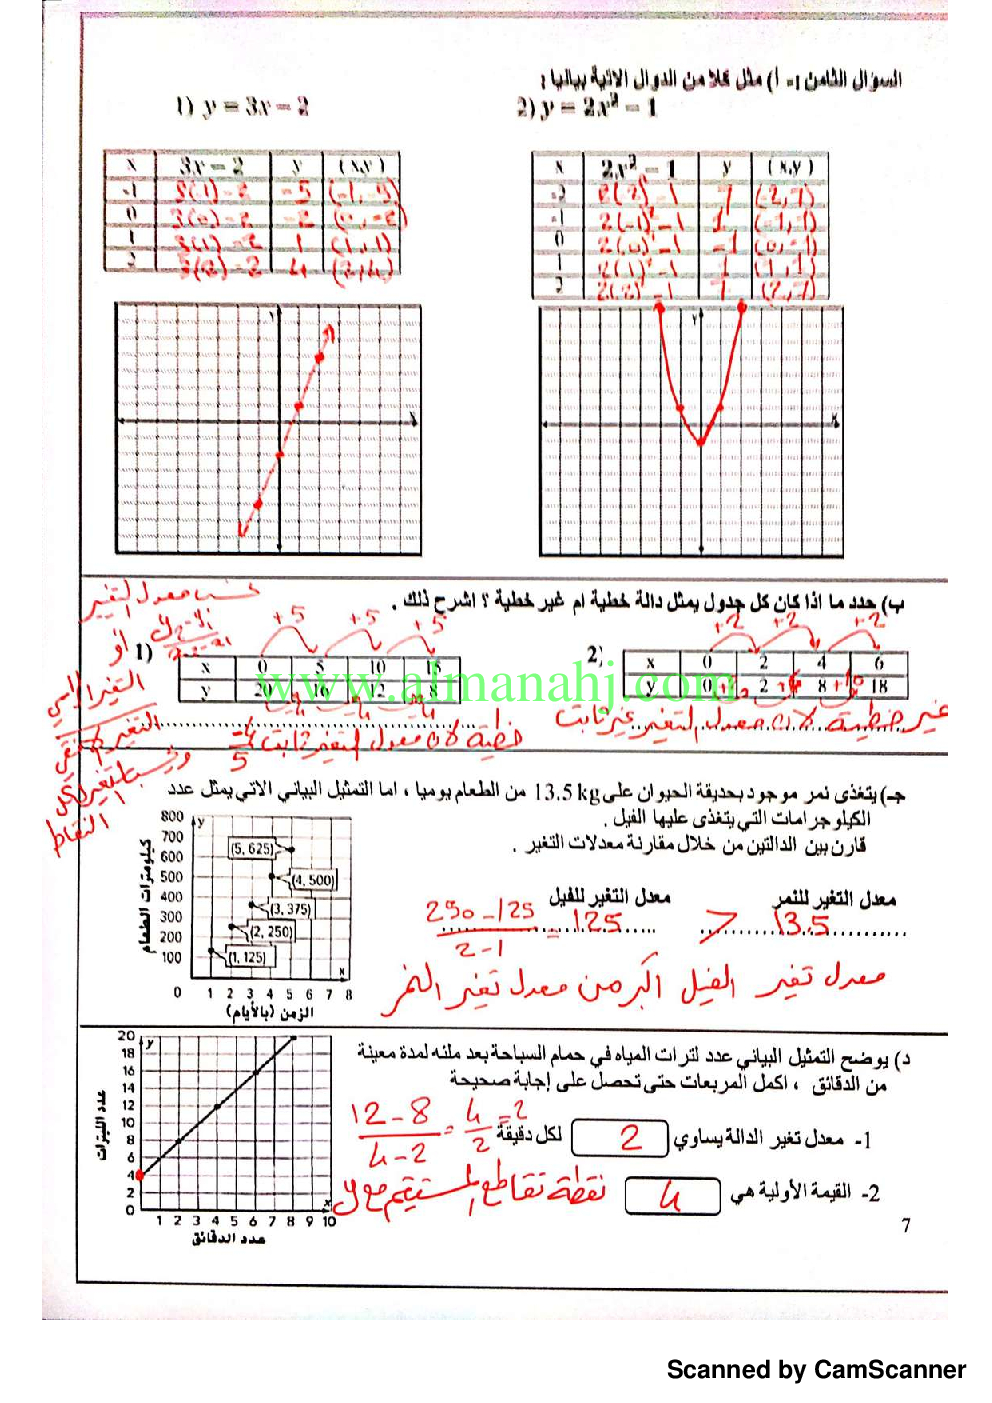 السؤال الثامن :- أ) مثل كلا من الدوال الاتية بيانيا :
1) y = 3x – 2
2) y = 2x² – 1
x 3x – 2 y (x,y)
-1 3(-1)-2 -5 (-1,-5)
0 3(0)-2 -2 (0,-2)
1 3(1)-2 1 (1,1)
2 3(2)-2 4 (2,4)
x 2x² – 1 y (x,y)
-2 2(-2)²-1 7 (-2,7)
-1 2(-1)²-1 1 (-1,1)
0 2(0)²-1 -1 (0,-1)
1 2(1)²-1 1 (1,1)
2 2(2)²-1 7 (2,7)
Y
X
Y
X
ب) حدد ما اذا كان كل جدول يمثل دالة خطية ام غير خطية ؟ اشرح ذلك .
نحسب معدل التغير
أو
التغير الرأسي
التغير الأفقي
ونحسب التغير لكل
النقاط
1)
+5 +5 +5
x 0 5 10 15
y 20 16 12 8
-4 -4 -4
خطية لأن معدل التغير ثابت -4/5
2)
+2 +2 +2
x 0 2 4 6
y 0 2 8 18
+2 +6 +10
غير خطية لأن معدل التغير غير ثابت
www.almanahj.com
جـ) يتغذى نمر موجود بحديقة الحيوان على 13.5 kg من الطعام يوميا ، اما التمثيل البياني الاتي يمثل عدد
الكيلوجرامات التي يتغذى عليها الفيل .
قارن بين الدالتين من خلال مقارنة معدلات التغير .
معدل التغير للنمر
13.5
>
معدل التغير للفيل
250-125 / 2-1 = 125
معدل تغير الفيل أكبر من معدل تغير النمر
كيلومترات الطعام
800
700
600
500
400
300
200
100
0 1 2 3 4 5 6 7 8
y
x
(5, 625)
(4, 500)
(3, 375)
(2, 250)
(1, 125)
الزمن (بالأيام)
د) يوضح التمثيل البياني عدد لترات المياه في حمام السباحة بعد ملئه لمدة معينة
من الدقائق ، اكمل المربعات حتى تحصل على إجابة صحيحة
1- معدل تغير الدالة يساوي 2 لكل دقيقة
12-8 / 4-2 = 4/2 = 2
2- القيمة الأولية هي 4
نقطة تقاطع المستقيم مع y
عدد اللترات
20
18
16
14
12
10
8
6
4
2
0
1 2 3 4 5 6 7 8 9 10
y
x
عدد الدقائق
7
Scanned by CamScanner